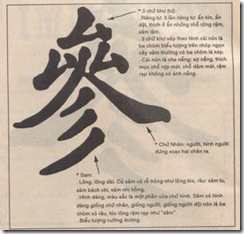 * 3 chữ khư (ㄙ)
. Riêng tư: 3 lần riêng tư: ẩn kín, ẩn
dật, thích ở ẩn những chỗ rừng rậm,
sâm lâm.
. 3 chữ khư xếp theo hình cái nón là
ba chòm biểu tượng trên chóp ngọn
cây nấm thường có ba chòm lá kép.
. Cái nón là che nắng: sợ nắng, thích
mọc chỗ rợp mát, chỗ dâm mát, rậm
rạp không có ánh nắng.
參
* Chữ Nhân: người, hình người
đứng xoạc hai chân ra.
* Sam:
. Lông, lông dài. Củ sâm có rễ trông như lông tóc, râu: sâm tu,
sâm bách chi, sâm nhị hồng.
. Hình dáng, màu sắc là một phần của chữ hình. Sâm có hình
dáng giống chữ nhân, giống người, giống người đội nón lá ba
chòm có râu, tóc lông rậm rạp như "xăm".
. Biểu tượng cường dương.